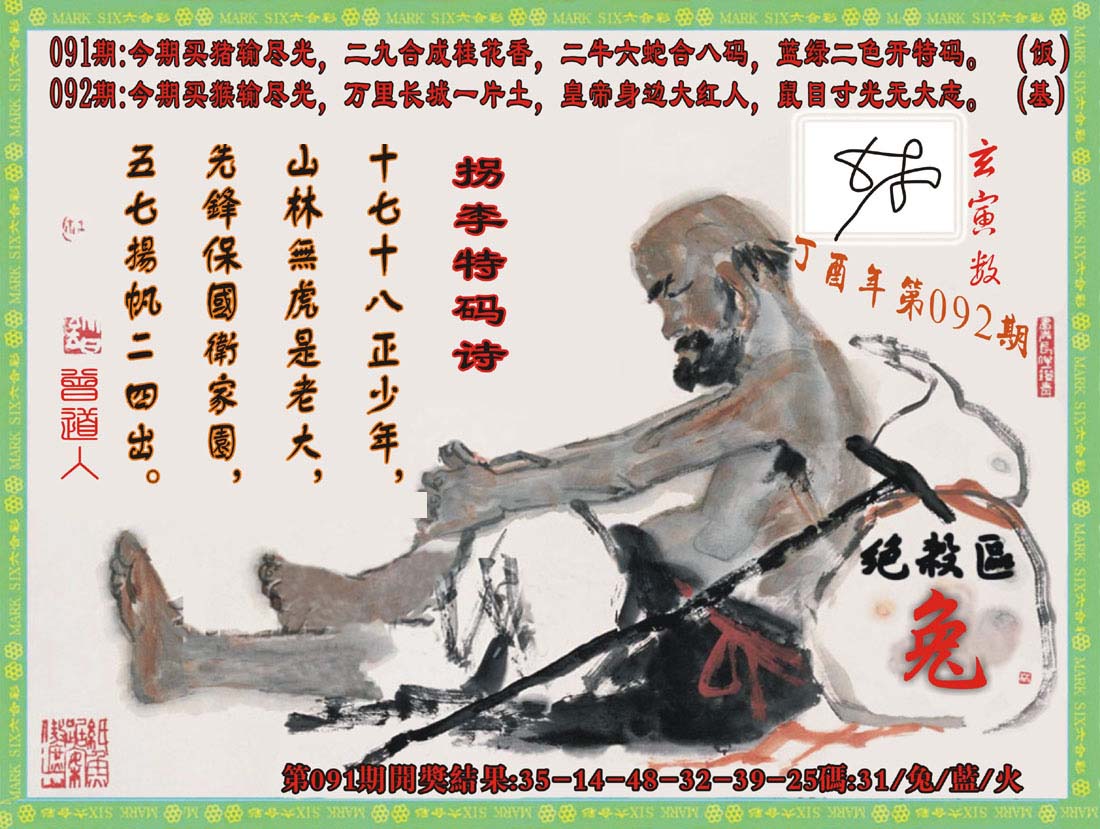 MARK SIX六合彩 MARK SIX六合彩 MARK SIX六合彩 MARK SIX六合彩 MARK SIX六合彩 MARK SIX六合彩
091期:今期买猪输尽光，二九合成桂花香，二牛六蛇合八码，蓝绿二色开特码。 (饭)
092期:今期买猴输尽光，万里长城一片土，皇帝身边大红人，鼠目寸光无大志。 (基)
玄寅数
丁酉年第092期
拐李特码诗
十七十八正少年，
山林無虎是老大，
先鋒保國衛家園，
五七揚帆二四出。
曾道人
绝殺區
兔
第091期開獎結果:35-14-48-32-39-25碼:31/兔/藍/火